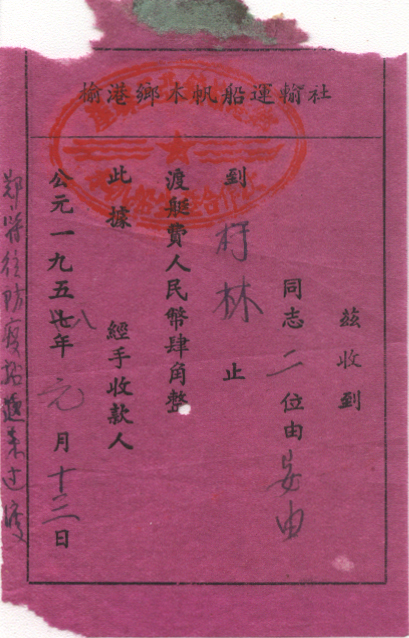 榆港鄉木帆船運輸社
茲收到
同志二位由安由
到 林止
渡艇費人民幣肆角整
此據 經手收款人
公元一九五七八年元月十三日
往防疫站 來过渡